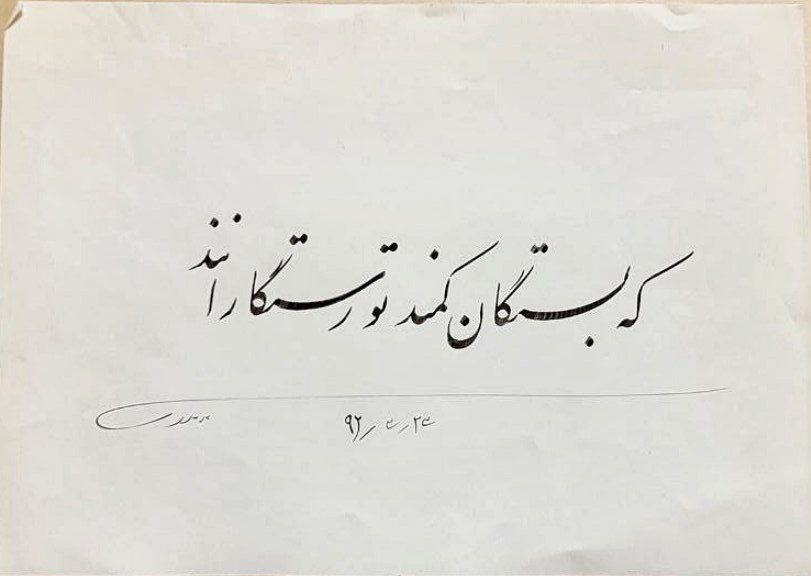 که بستگان کمند تو رستگارانند
۹۲/۳/۲۳